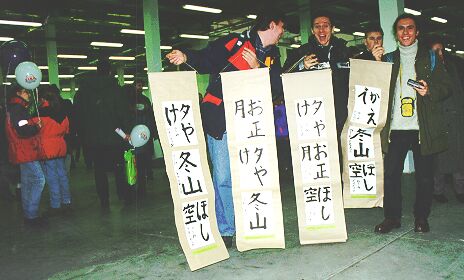 夕やけ
冬山
ほし空
お正月
夕やけ
冬山
夕やけ
お正月
ほし空
かえで
冬山
ほし空